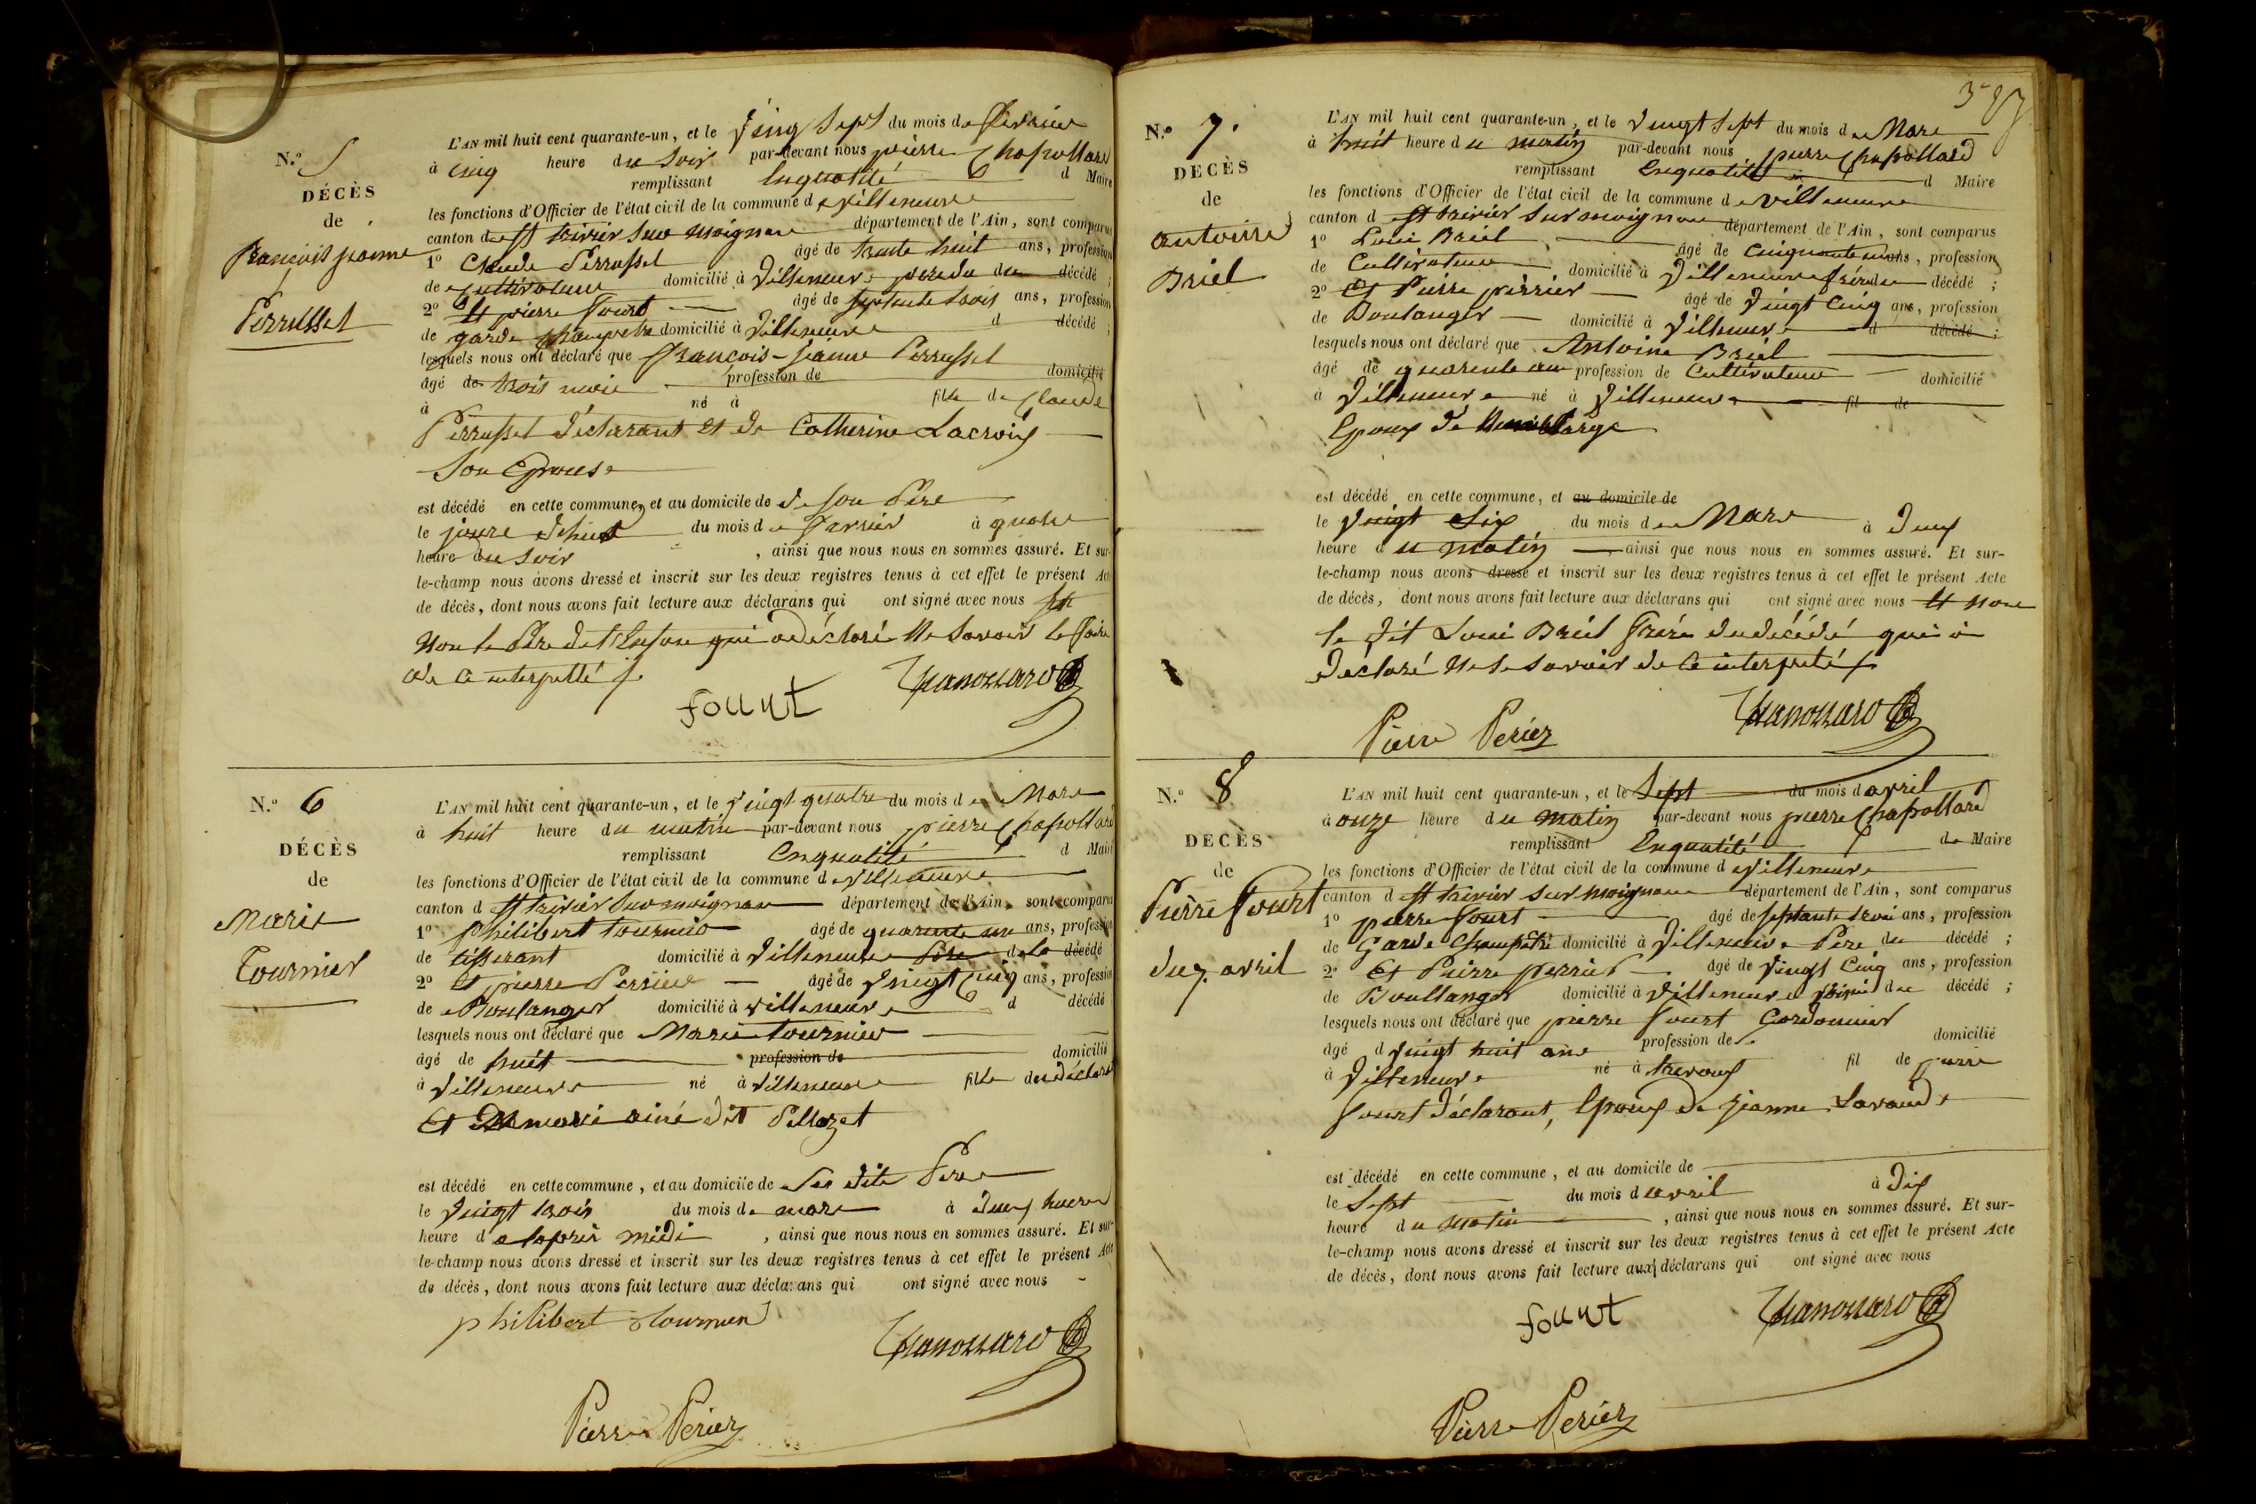 N.° 5
DÉCÈS
de
françois jeanne
Perrusset
L'AN mil huit cent quarante-un, et le Vingt Sept du mois de fevrier
à cinq heure du Soir par-devant nous pierre Chapollard
remplissant Enqualité d Maire
les fonctions d'Officier de l'état civil de la commune de villeneuve
canton de St trivier Sur moignan département de l'Ain, sont comparus
1° Claude Perrusset âgé de trente huit ans, profession
de Cultivateur domicilié à Villeneuve pere du décédé ;
2° Et pierre fourt âgé de septente trois ans, profession
de garde champetre domicilié à Villeneuve d décédé ;
lesquels nous ont déclaré que francois-jeanne Perrusset
âgé de trois mois profession de domicilié
à né à fille de Claude
Perrusset déclarant Et de Catherine Lacroix
Son Epouse
est décédé en cette commune, et au domicile de de Son Père
le jour du mois de à quatre
heure du Soir , ainsi que nous nous en sommes assuré. Et sur-
le-champ nous avons dressé et inscrit sur les deux registres tenus à cet effet le présent Acte
de décès, dont nous avons fait lecture aux déclarans qui ont signé avec nous Et
Non le Père qui a déclaré Ne Savoir le faire
de ce interpellé
fourt
N.° 6
DÉCÈS
de
Marie
Tournier
L'AN mil huit cent quarante-un, et le Vingt quatre du mois de Mars
à huit heure du matin par-devant nous pierre Chapollard
remplissant Enqualité d Maire
les fonctions d'Officier de l'état civil de la commune de Villeneuve
canton d St trivier Sur moignan département de l'Ain, sont comparus
1° Philibert Tournier âgé de quarente un ans, profession
de tisserant domicilié à Villeneuve Père de la décédé
2° Et pierre Perrier âgé de Vingt Cinq ans, profession
de Boulanger domicilié à Villeneuve d décédé
lesquels nous ont déclaré que Marie Tournier
âgé de huit profession de domicilié
à Villeneuve né à Villeneuve fille du déclarant
Et marie aimé dit Pillozet
est décédé en cette commune, et au domicile de Ses dite Père
le Vingt trois du mois de mars à deux heures
heure d elaprès midi , ainsi que nous nous en sommes assuré. Et sur-
le-champ nous avons dressé et inscrit sur les deux registres tenus à cet effet le présent Acte
de décès, dont nous avons fait lecture aux déclarans qui ont signé avec nous
philibert tournier
Pierre Perier
N.° 7.
DÉCÈS
de
antoine
Briel
L'AN mil huit cent quarante-un, et le Vingt Sept du mois de Mars
à huit heure du matin par-devant nous pierre Chapollard
remplissant Enqualité d Maire
les fonctions d'Officier de l'état civil de la commune de villeneuve
canton d St trivier Sur moignan département de l'Ain, sont comparus
1° Louis Briel âgé de Cinquante ans, profession
de Cultivateur domicilié à Villeneuve frère du décédé ;
2° Et Pierre périer âgé de Vingt Cinq ans, profession
de Boulanger domicilié à Villeneuve d décédé ;
lesquels nous ont déclaré que Antoine Briel
âgé de quarente ans profession de Cultivateur domicilié
à Villeneuve né à Villeneuve fil de
Epoux de
est décédé en cette commune, et au domicile de
le Vingt Six du mois de Mars à deux
heure du matin ainsi que nous nous en sommes assuré. Et sur-
le-champ nous avons dressé et inscrit sur les deux registres tenus à cet effet le présent Acte
de décès, dont nous avons fait lecture aux déclarans qui ont signé avec nous Et Non
le dit Louis Briel frère du décédé qui a
déclaré Ne Savoir de ce interpellé
Pierre Perier
N.° 8
DÉCÈS
de
Pierre fourt
du 7 avril
L'AN mil huit cent quarante-un, et le Sept du mois d avril
à onze heure du matin par-devant nous pierre Chapollard
remplissant Enqualité de Maire
les fonctions d'Officier de l'état civil de la commune d villeneuve
canton d St trivier Sur moignan département de l'Ain, sont comparus
1° pierre fourt âgé de septante trois ans, profession
de Garde Champêtre domicilié à Villeneuve Père du décédé ;
2° Et Pierre perrier âgé de Vingt Cinq ans, profession
de Boullanger domicilié à Villeneuve voisin du décédé ;
lesquels nous ont déclaré que pierre fourt Cordonnier
âgé d Vingt huit ans profession de domicilié
à Villeneuve né à trevoux fil de pierre
fourt déclarant, Epoux de jeanne Lavaud
est décédé en cette commune, et au domicile de
le Sept du mois d avril à dix
heure du matin , ainsi que nous nous en sommes assuré. Et sur-
le-champ nous avons dressé et inscrit sur les deux registres tenus à cet effet le présent Acte
de décès, dont nous avons fait lecture aux déclarans qui ont signé avec nous
fourt
Pierre Perier